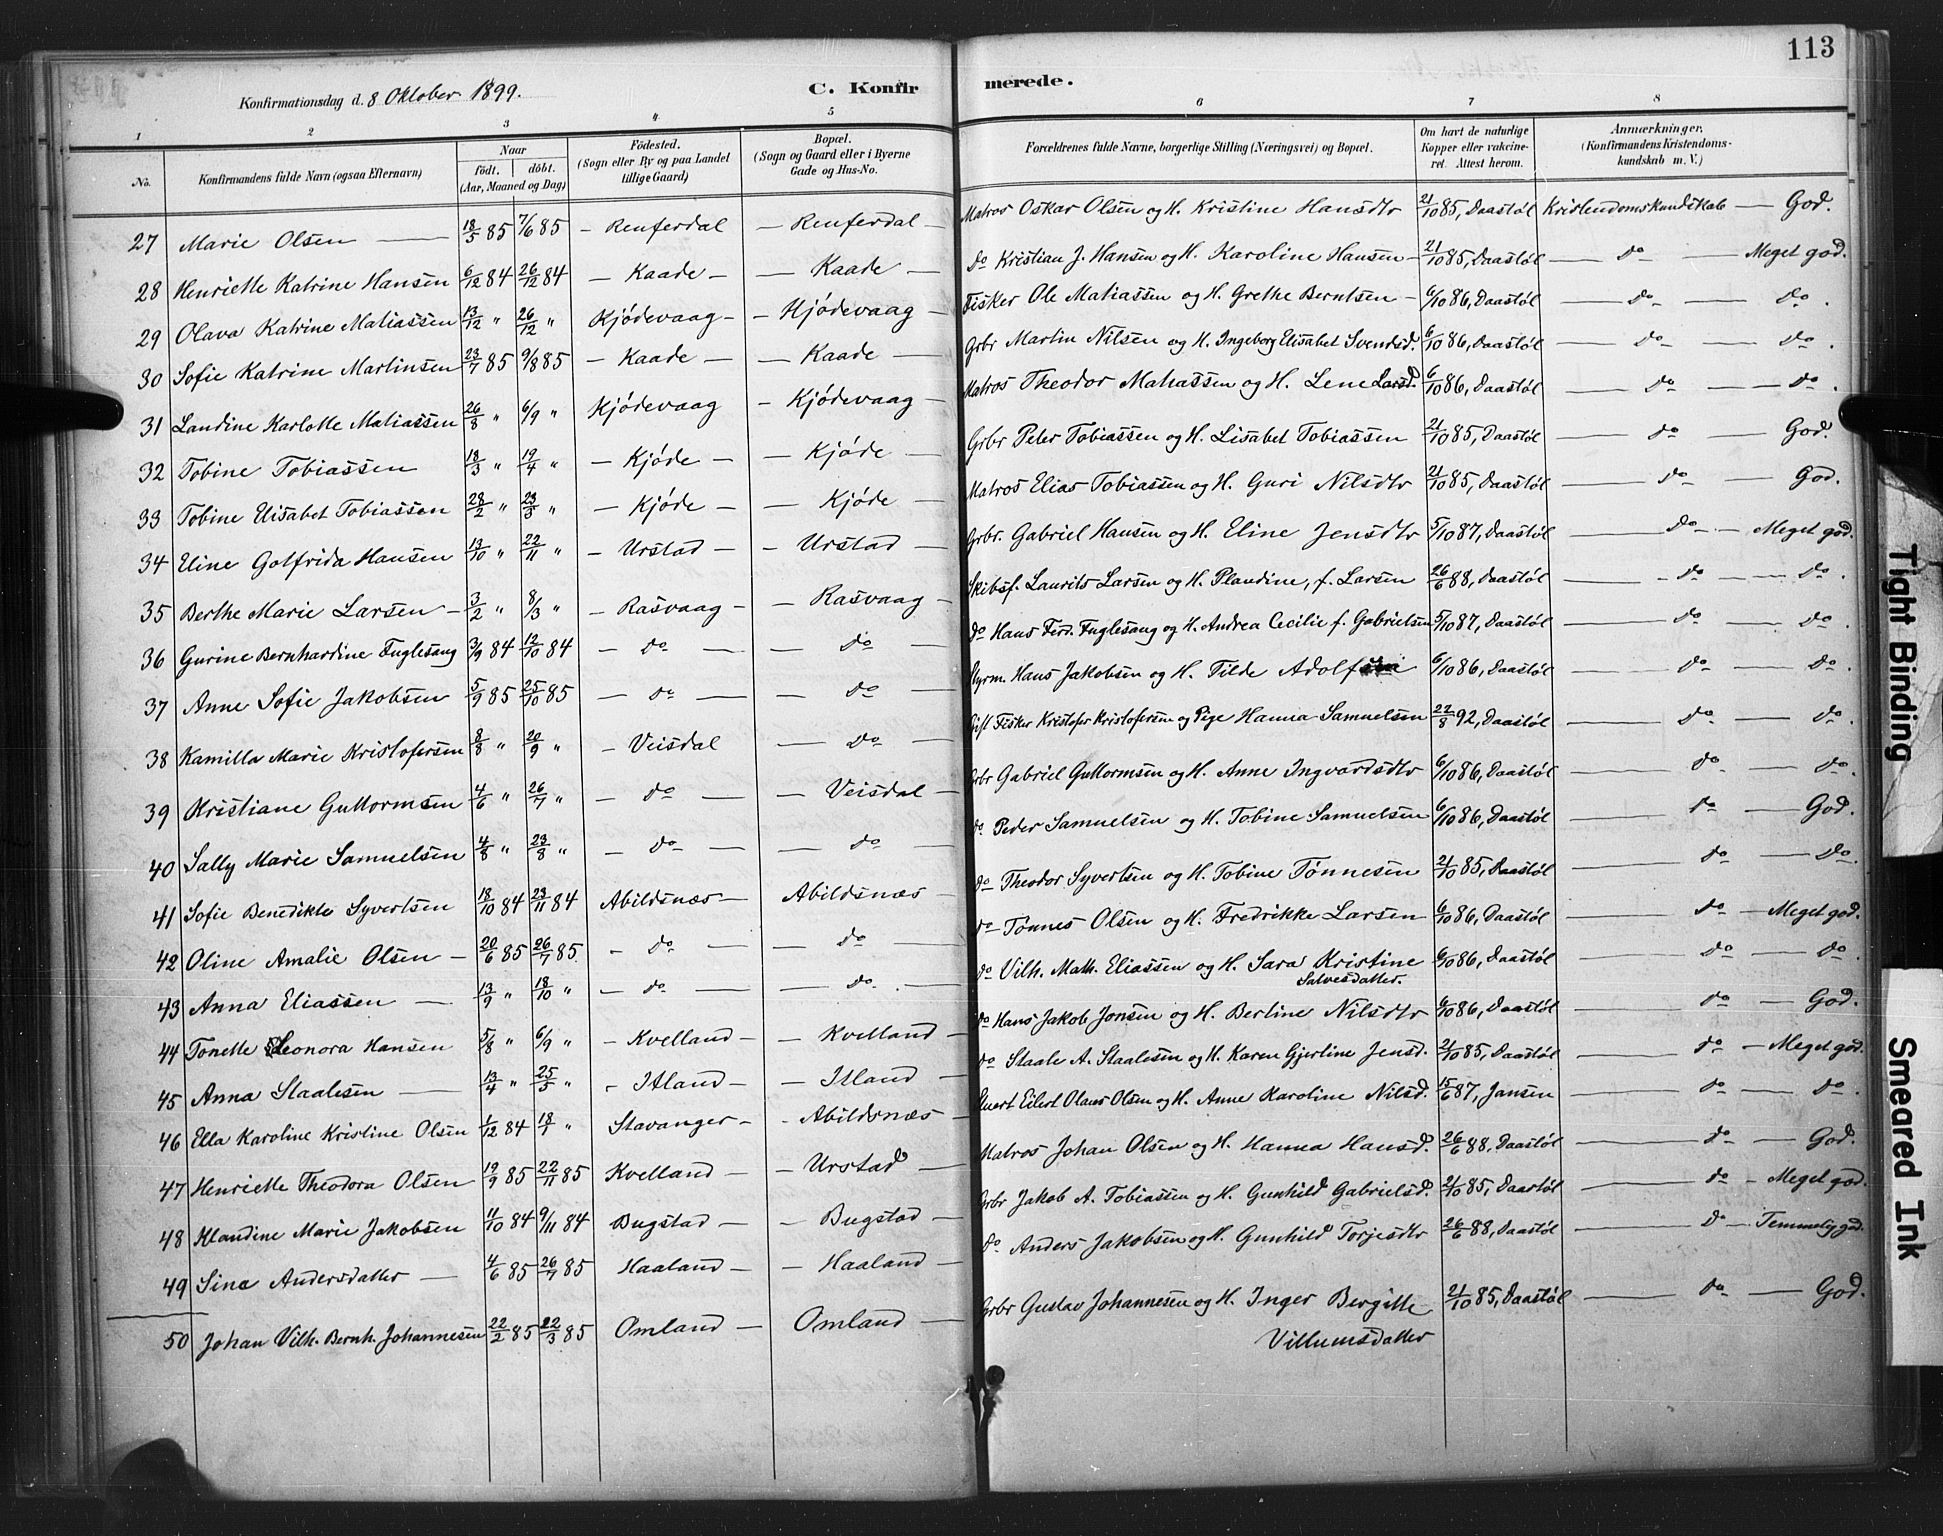 113
Konfirmationsdag d. 8 Oktober 1899. C. Konfirmerede.
1 2 3 4 5 6 7 8
No. Konfirmandens fulde Navn (ogsaa Efternavn) Naar födt. döbt. (Aar, Maaned og Dag) Födested. (Sogn eller By og paa Landet tillige Gaard) Bopæl. (Sogn og Gaard eller i Byerne Gade og Hus-No. Forældrenes fulde Navne, borgerlige Stilling (Næringsvei) og Bopæl. Om havt de naturlige Kopper eller vaccineret. Attest herom. Anmærkninger. (Konfirmandens Kristendomskundskab m. V.)
27 Marie Olsen — 18/5 85 7/6 85 — Renferdal — Renferdal — Matros Oskar Olsen og H. Kristine Hansdtr 21/10 85, Daastøl Kristendomskundskab — God.
28 Henriette Katrine Hansen 6/12 84 26/12 84 — Kaade — — Kaade — do Kristian J. Hansen og H. Karoline Hansen — 21/10 85, Daastøl — do — Meget god.
29 Olava Katrine Matiassen 13/12 " 26/12 " Kjödevaag — — Kjödevaag — Fisker Ole Matiassen og H. Grethe Berntsen — 6/10 86, Daastøl — do — do.
30 Sofie Katrine Martinsen 23/7 85 9/8 85 — Kaade — — Kaade — Grbr Martin Nilsen og H. Ingeborg Elisabet Svendsd. 6/10 86, Daastøl — do — do.
31 Landine Karlotte Matiassen 26/8 " 6/9 " Kjödevaag — Kjödevaag — Matros Theodor Matiassen og H. Lene Larsd. 6/10 86, Daastøl — do — do.
32 Tobine Tobiassen 18/3 " 19/4 " — Kjöde — — Kjöde — Grbr Peter Tobiassen og H. Lisabet Tobiassen 21/10 85, Daastøl — do — God.
33 Tobine Elisabet Tobiassen 28/2 " 23/3 " — Kjöde — — Kjöde — Matros Elias Tobiassen og H. Guri Nilsdtr 21/10 85, Daastøl — do — God.
34 Eline Gotfrida Hansen 13/10 " 22/11 " — Urstad — — Urstad — Grbr. Gabriel Hansen og H. Eline Jensdtr 5/10 87, Daastøl — do — Meget god.
35 Berthe Marie Larsen — 3/2 " 8/3 " — Rasvaag — — Rasvaag — Skibsf. Laurits Larsen og H. Plandine, f. Larsen 26/6 88, Daastøl — do — do.
36 Gurine Bernhardine Fuglesang 3/9 84 12/10 84 — do — — do — do Hans Ferd. Fuglesang og H. Andrea Cecilie f. Gabrielsen 5/10 87, Daastøl — do — do.
37 Anne Sofie Jakobsen 5/9 85 25/10 85 — do — — do — Styrm. Hans Jakobsen og H. Tilde 6/10 86, Daastøl — do — do.
38 Kamilla Marie Kristofersen 8/8 " 20/9 " — Veisdal — do — Gift Fisker Kristofer Kristofersen og Pige Hanna Samuelsen 22/8 92, Daastøl — do — do.
39 Kristiane Guttormsen 4/6 " 26/7 " — do — — Veisdal — Grbr Gabriel Guttormsen og H. Anne Ingvardsdtr 6/10 86, Daastøl — do — do.
40 Sally Marie Samuelsen 4/8 " 23/8 " — do — — do — do Peder Samuelsen og H. Tobine Samuelsen 6/10 86, Daastøl — do — God.
41 Sofie Benedikte Syvertsen 18/10 84 23/11 84 Abildsnæs — Abildsnæs — do Theodor Syvertsen og H. Tobine Tönnesen 21/10 85, Daastøl — do — do.
42 Oline Amalie Olsen — 20/6 85 26/7 85. — do — — do — do Tönnes Olsen og H. Fredrikke Larsen 6/10 86, Daastøl — do — Meget god.
43 Anna Eliassen — 13/9 " 18/10 " — do — — do — do Vilh. Math. Eliassen og H. Sara Kristine Salvesdatter. 6/10 86, Daastøl — do — do.
44 Tonette Leonora Hansen 5/8 " 6/9 " — Kvelland — — Kvelland — do Hans Jakob Jonsen og H. Berline Nilsdtr 6/10 86, Daastøl — do — God.
45 Anna Staalesen — 13/4 " 25/5 " — Itland — — Itland — do Staale A. Staalesen og H. Karen Gjertine Jensd. 21/10 85, Daastøl — do — Meget god.
46 Ella Karoline Kristine Olsen 1/12 84 18/1 " Stavanger — — Abildsnæs — Eilert Olaus Olsen og H. Anne Karoline Nilsd. 15/6 87, Jansen — do — do.
47 Henriette Theodora Olsen 19/9 85 22/11 85 Kvelland — — Urstad — Matros Johan Olsen og H. Hanna Hansd. 26/6 88, Daastøl — do — God.
48 Klandine Marie Jakobsen 11/10 84 9/11 84 Bugstad — — Bugstad — Grbr Jakob A. Tobiassen og H. Gunhild Gabrielsd. 21/10 85, Daastøl — do — Meget god.
49 Sina Andersdatter — 4/6 85 26/7 85 Haaland — — Haaland — do Anders Jakobsen og H. Gunhild Torjesdtr 26/6 88, Daastøl — do — Temmelig god.
50 Johan Vilh. Bernh. Johannesen 22/2 85 22/3 85 Omland — Omland — Grbr Gustav Johannesen og H. Inger Bergitte Villumsdatter 21/10 85, Daastøl — do — God.
Tight Binding
Smeared Ink